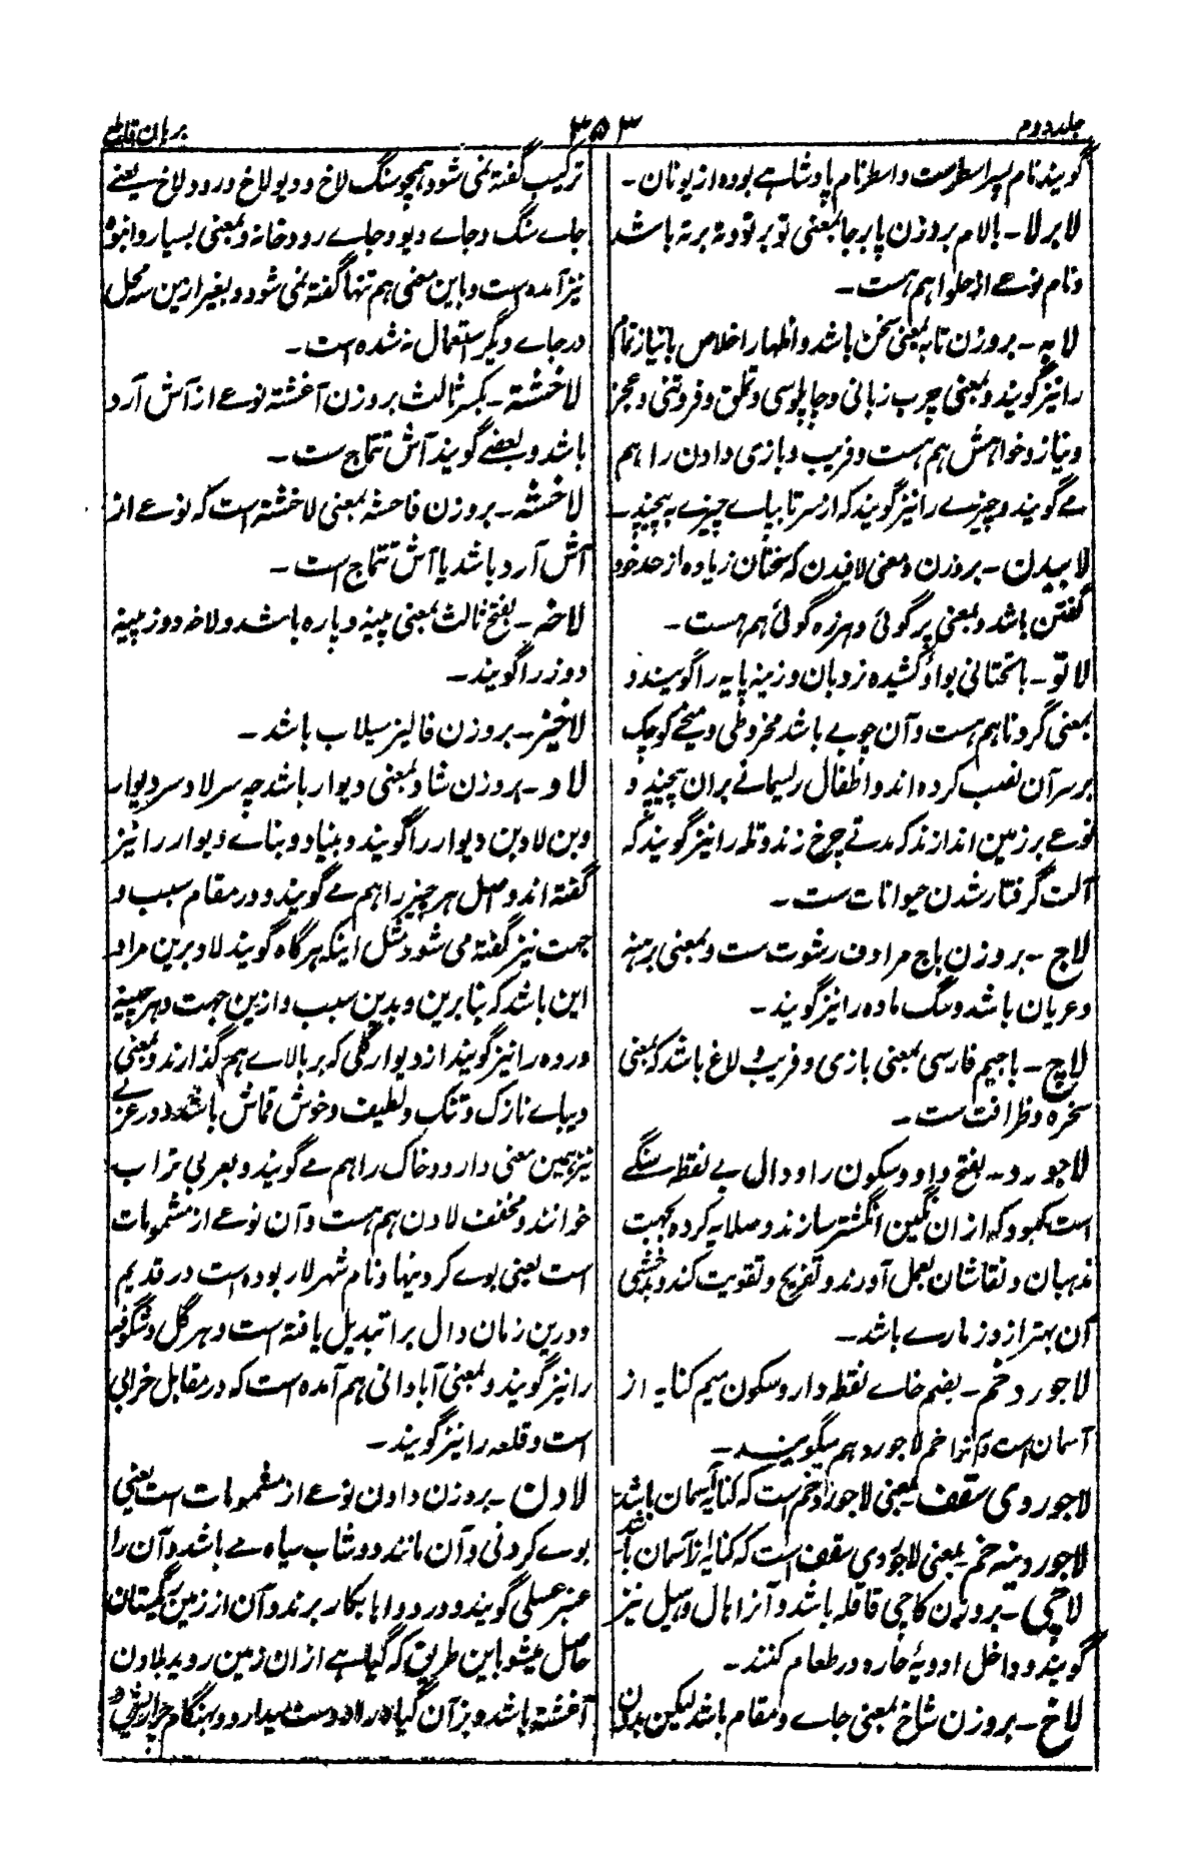 جلد دوم
۳۵۳
برہان قاطع
گویند نام پسر اسطرست و اسطر نام پادشاہے بودہ از یونان۔
لابرلا۔ بالام بروزن پابرجا بمعنی تو بر تو و تہ بر تہ باشد
و نام نوعے از حلوا ہم ہست۔
لابہ۔ بروزن تابہ بمعنی سخن باشد و اظہار اخلاص با نیاز تمام
را نیز گویند و بمعنی چرب زبانی و چاپلوسی و تملق و فروتنی و عجز
و نیاز و خواہش ہم ہست و فریب و بازی دادن را ہم
مے گویند و چیزے را نیز گویند کہ از سر تا پاے چیزے بہ پیچند۔
لابیدن۔ بروزن و معنی لافیدن کہ سخنان زیادہ از حد خود
گفتن باشد و بمعنی پرگوئی و ہرزہ گوئی ہم ہست۔
لاتو۔ باتحتانی بواو کشیدہ نردبان و زینہ پایہ را گویند و
بمعنی گردنا ہم ہست و آن چوبے باشد مخروطی و میخے کوچک
بر سر آن نصب کردہ اند و اطفال ریسمانے بران پیچند و
نوعے بر زمین اندازند کہ مدتے چرخ زند و تلہ را نیز گویند کہ
آلت گرفتار شدن حیوانات ست۔
لاج۔ بروزن باج مرادف رشوت ست و بمعنی برہنہ
و عریان باشد و سگ مادہ را نیز گویند۔
لاچ۔ باجیم فارسی بمعنی بازی و فریب و لاغ باشد کہ بمعنی
سخرہ و ظرافت ست۔
لاجورد۔ بفتح واو و سکون را و دال بے نقطہ سنگے
است کبود کہ ازان نگین انگشتر سازند و صلایہ کردہ بجہت
مذہبان و نقاشان بعمل آورند و تفریح و تقویت کند و بدخشی
آن بہتر از دزمارے باشد۔
لاجورد خم۔ بضم خاے نقطہ دار و سکون میم کنایہ از
آسمان است و آنرا خم لاجورد ہم میگویند۔
لاجوردی سقف بمعنی لاجورد خم است کہ کنایہ از آسمان باشد
لاجوردینہ خم۔ بمعنی لاجوردی سقف است کہ کنایہ از آسمان باشد
لاچی۔ بروزن کاچی قاقلہ باشد و آنرا ہال و ہیل نیز
گویند و داخل ادویۂ حارہ در طعام کنند۔
لاخ۔ بروزن شاخ بمعنی جاے و مقام باشد لیکن بدون
ترکیب گفتہ نمی شود ہمچو سنگ لاخ و دیو لاخ و رود لاخ یعنے
جاے سنگ و جاے دیو و جاے رودخانہ و بمعنی بسیار و انبوہ
نیز آمدہ است و باین معنی ہم تنہا گفتہ نمی شود و بغیر ازین سہ محل
در جاے دیگر استعمال نہ شدہ است۔
لاخشتہ۔ بکسر ثالث بروزن آغشتہ نوعے از آش آرد
باشد و بعضے گویند آش تتماج ست۔
لاخشہ۔ بروزن فاحشہ بمعنی لاخشتہ است کہ نوعے از
آش آرد باشد یا آش تتماج است۔
لاخہ۔ بفتح ثالث بمعنی پینہ و پارہ باشد و لاخہ دوز پینہ
دوز را گویند۔
لاخیز۔ بروزن فالیز سیلاب باشد۔
لاد۔ بروزن شاد بمعنی دیوار باشد چہ سرلاد سر دیوار
و بن لاد بن دیوار را گویند و بنیاد و بناے دیوار را نیز
گفتہ اند و اصل ہر چیز را ہم مے گویند و در مقام سبب و
جہت نیز گفتہ می شود مثل اینکہ ہرگاہ گویند لاد برین مراد
این باشد کہ بنا برین و بدین سبب و ازین جہت و ہر چینہ
و ردہ را نیز گویند از دیوار گلی کہ بر بالاے ہم گذارند و بمعنی
دیباے نازک و تنک و لطیف و خوش قماش باشد و در عربی
نیز ہمین معنی دارد و خاک را ہم مے گویند و بعربی تراب
خوانند و مخفف لادن ہم ہست و آن نوعے از مشمومات
است یعنی بوے کردنیہا و نام شہر لار بودہ است در قدیم
و درین زمان دال برا تبدیل یافتہ است و ہر گل و شگوفہ
را نیز گویند و بمعنی آبادانی ہم آمدہ است کہ در مقابل خرابی
است و قلعہ را نیز گویند۔
لادن۔ بروزن دادن نوعے از مشمومات است یعنی
بوے کردنی و آن مانند دوشاب سیاہ مے باشد و آن را
عنبر عسلی گویند و در دواہا بکار برند و آن از زمین ریگستان
حاصل میشو باین طریق کہ گیاہے ازان زمین روید بلادن
آغشتہ باشد و بز آن گیاہ را دوست میدارد و بہنگام چرا ریش و